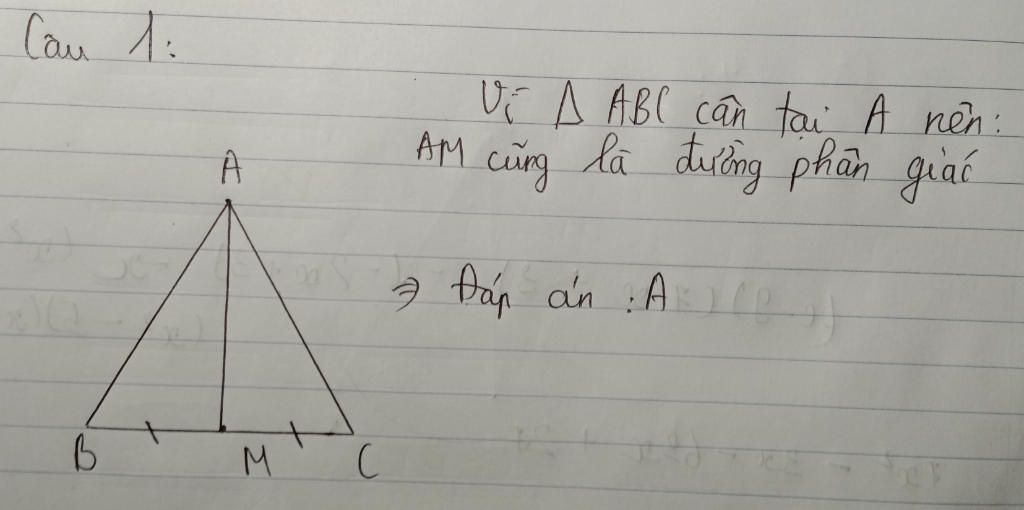 Câu 1:
Vì Δ ABC cân tại A nên:
AM cũng là đường phân giác
A
⇒ Đáp án : A
B M C